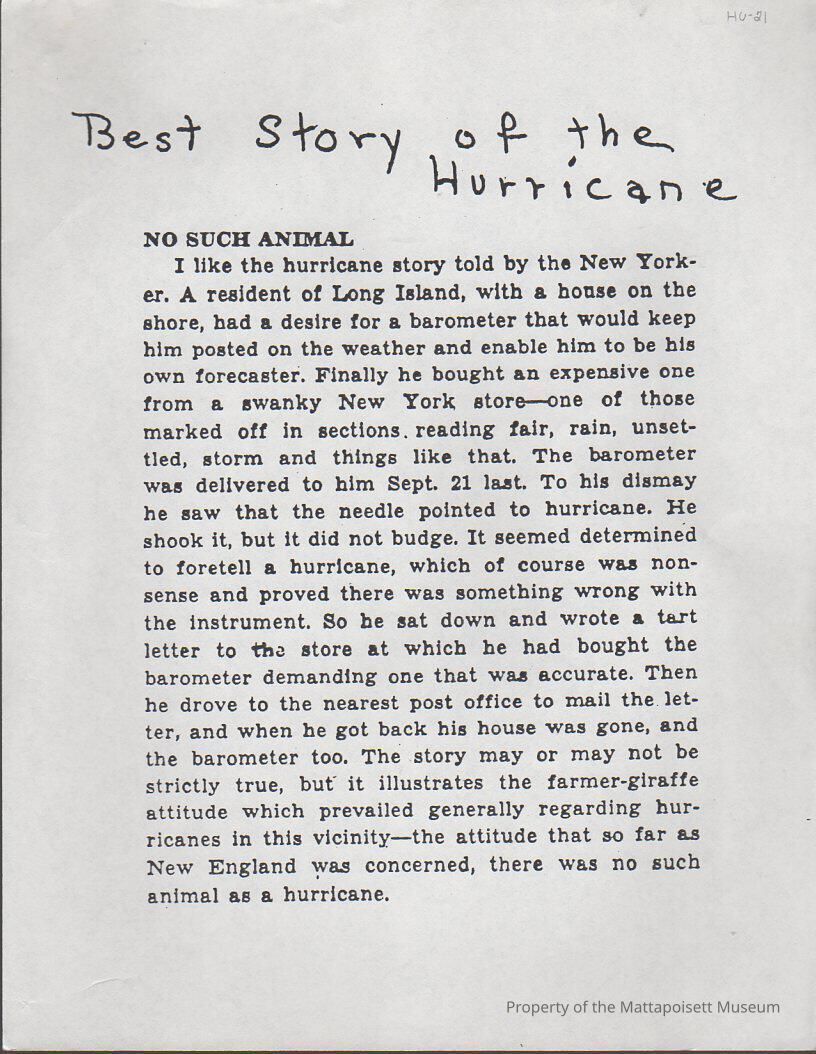 HU-21
Best Story of the
Hurricane
NO SUCH ANIMAL
I like the hurricane story told by the New York-
er. A resident of Long Island, with a house on the
shore, had a desire for a barometer that would keep
him posted on the weather and enable him to be his
own forecaster. Finally he bought an expensive one
from a swanky New York store—one of those
marked off in sections. reading fair, rain, unset-
tled, storm and things like that. The barometer
was delivered to him Sept. 21 last. To his dismay
he saw that the needle pointed to hurricane. He
shook it, but it did not budge. It seemed determined
to foretell a hurricane, which of course was non-
sense and proved there was something wrong with
the instrument. So he sat down and wrote a tart
letter to the store at which he had bought the
barometer demanding one that was accurate. Then
he drove to the nearest post office to mail the let-
ter, and when he got back his house was gone, and
the barometer too. The story may or may not be
strictly true, but it illustrates the farmer-giraffe
attitude which prevailed generally regarding hur-
ricanes in this vicinity—the attitude that so far as
New England was concerned, there was no such
animal as a hurricane.
Property of the Mattapoisett Museum